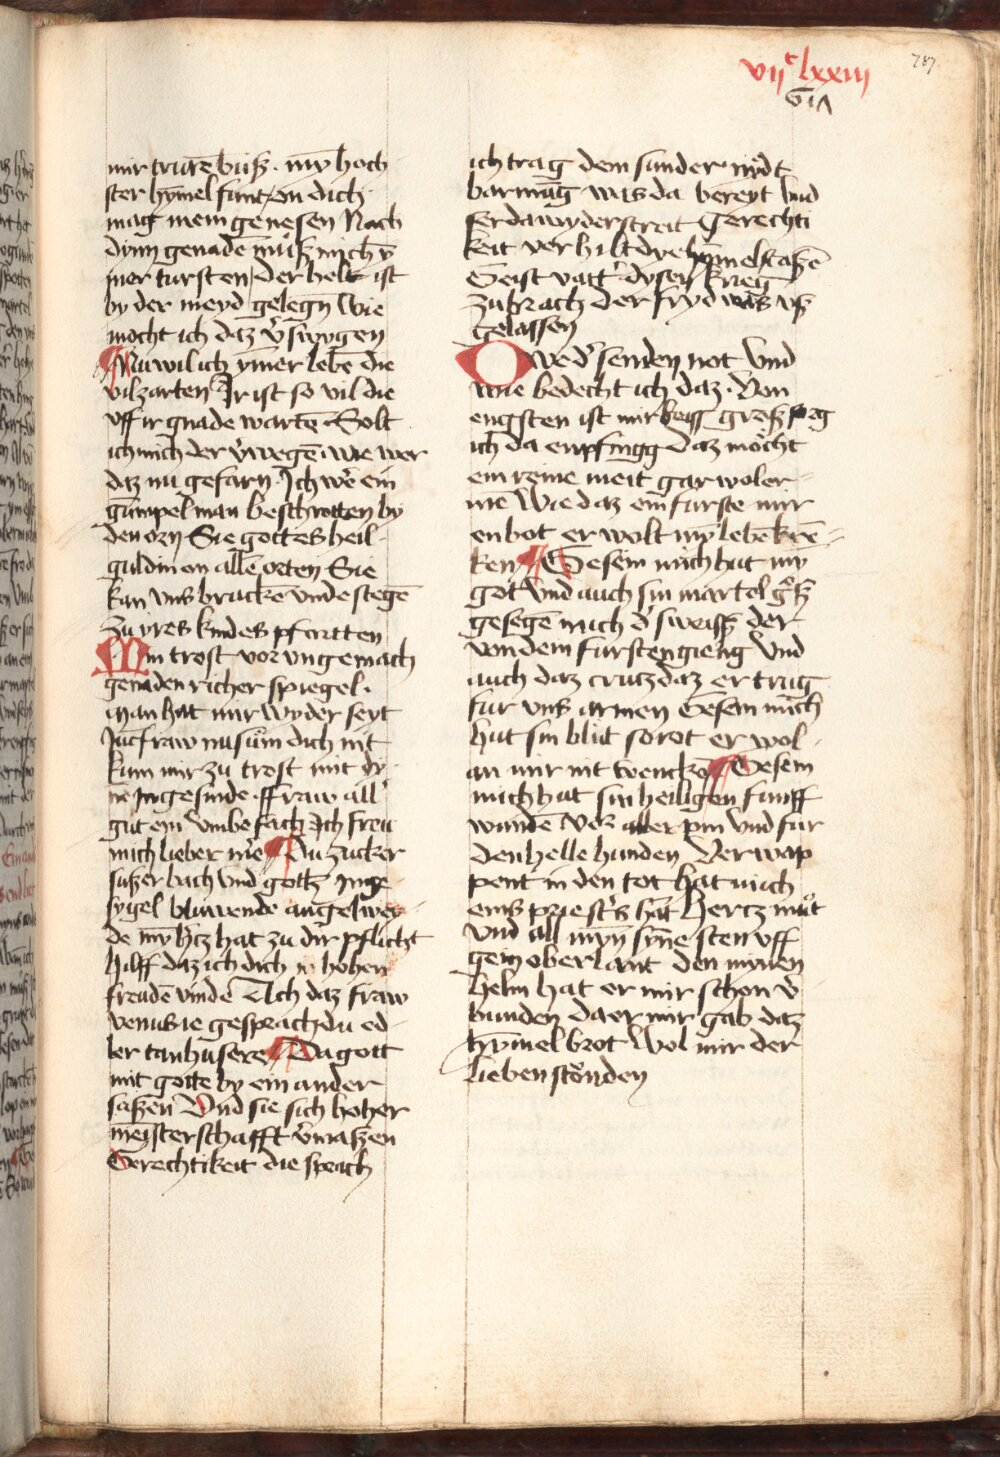 vijᶜ lxxiij
787.
mir trurē büß · mỹ hoch
ster hȳmel fant du dich
mag mein genesen Nach
dynn genadē müß mich ȳ
mer tursten der helt ist
by der meyd gelegn Wie
mocht ich daz v̾ swygen
Nu wil ich ymer lebē die
vil zarten Ir ist so vil die
vff ir gnade wartē Solt
ich mich der v̾wegē wie wer
daz nu gefarn Ich wē ein
gumpelman beschrotten by
den orn Sie gottes heil
guldin an allē orten Sie
kan vns brucke vnde stegē
zu yres kindes pfortten
Min trost vor vngemach
genaden richer spiegel ·
Man hat mir wyder seyt
Jucfraw nu sům dich nit
kum mir zu trost mit dy
ne Ingesinde · ffraw all
gut ein vmbefach Ich freu
mich lieber me Du zucker
sußer bach vnd gottz Inge
sygel bluwende angelwey
de mỹ h̾cz hat zu dir pflicht
hilff daz ich dich in hohen
freudē vindē Ach daz fraw
venus ie gesprach du ed
ler tanhusere Da gott
mit gotte by ein ander
saßen Vnd sie sich hoher
meisterschafft v̾maßen
Gerechtikeit die sprach
ich trag dem sunder nydt
barmūg was da bereyt vnd
ferda wyderstreit Gerechti
keit verhilt dye hȳmelstraßē
Geist vatt̾ dysen krieg
zubrach der fryd was vß
gelassen
Owe d̾ senden not Vnd
wie bedecht ich daz · Von
engsten ist mir heiß groß sorg
ich da enpfingg daz möcht
ein reine meit gar wol er
nē Wie daz ein furste mir
enbot er wolt mỹ lebē krē
ken Gesein mich hut mỹ
got vnd auch sin martel groß
gesegē mich d̾ sweiß der
von dem fursten gieng Vnd
auch daz crucz daz er trug
fur vns armen Gesein mich
hut sin blüt so rot er wol
an mir nit wencke Gesein
mich hut sin heiligen funff
wunde vor aller pin vnd fur
den helle hunden Der wap
pent in den tot hat mich
eins priest̾s hāt Hercz müt
vnd all myn syne sten vff
gein oberlant den mynen
helm hat er mir schon v̾
bunden da er mir gab daz
hȳmel brot Wol mir der
lieben stonden